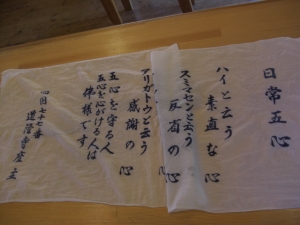 日常五心
ハイと云う
素直な心
スミマセンと云う
反省の心
アリガトウと云う
感謝の心
五心を守る人
五心を心がける人は
佛様です
四国七十七番
道隆寺